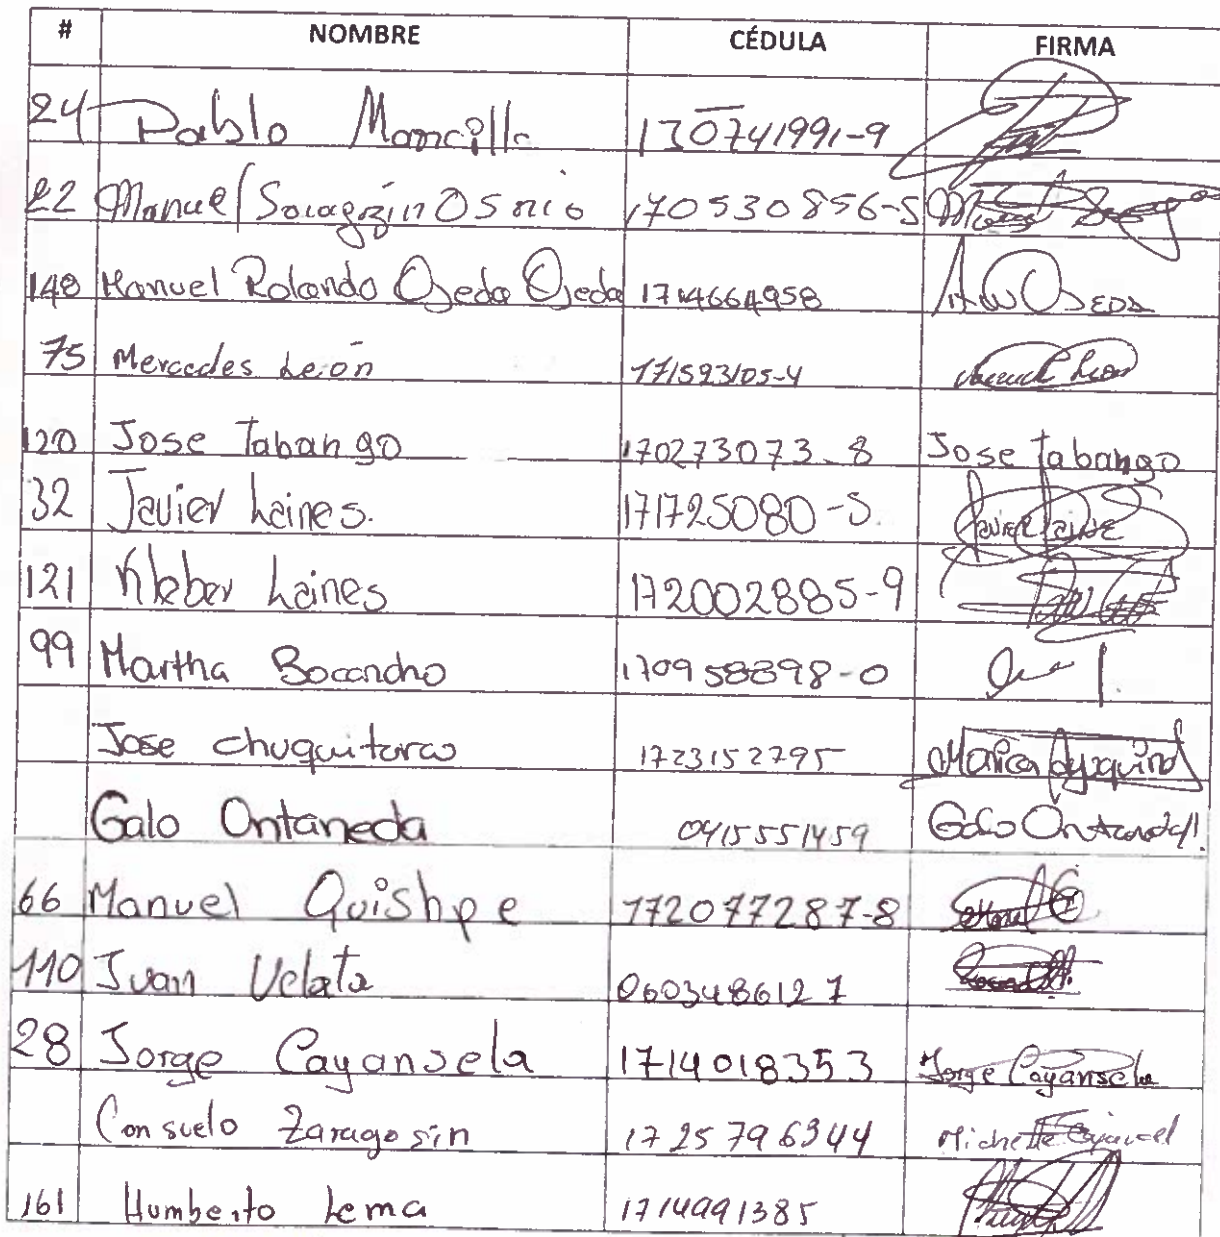 # NOMBRE CÉDULA FIRMA
24 Pablo Moncilla 130741991-9
22 Manuel Saragozin Osorio 170530856-5
148 Manuel Rolando Ojeda Ojeda 1714664958 Ojeda
75 Mercedes León 171593105-4 León
120 Jose Tabango 170273073-8 Jose tabango
32 Javier Laines. 171725080-5. Javier Laine
121 Kleber Laines 172002885-9
99 Martha Bocancho 170958898-0
Jose chuquitarco 1723152795 Maria
Galo Ontaneda 0415551459 Galo Ontaneda
66 Manuel Quishpe 172077287-8
110 Juan Velata 0603486127
28 Jorge Cayansela 1714018353 Jorge Cayansela
Consuelo Zaragosin 1725796344 Michelle
161 Humberto Lema 1714991385